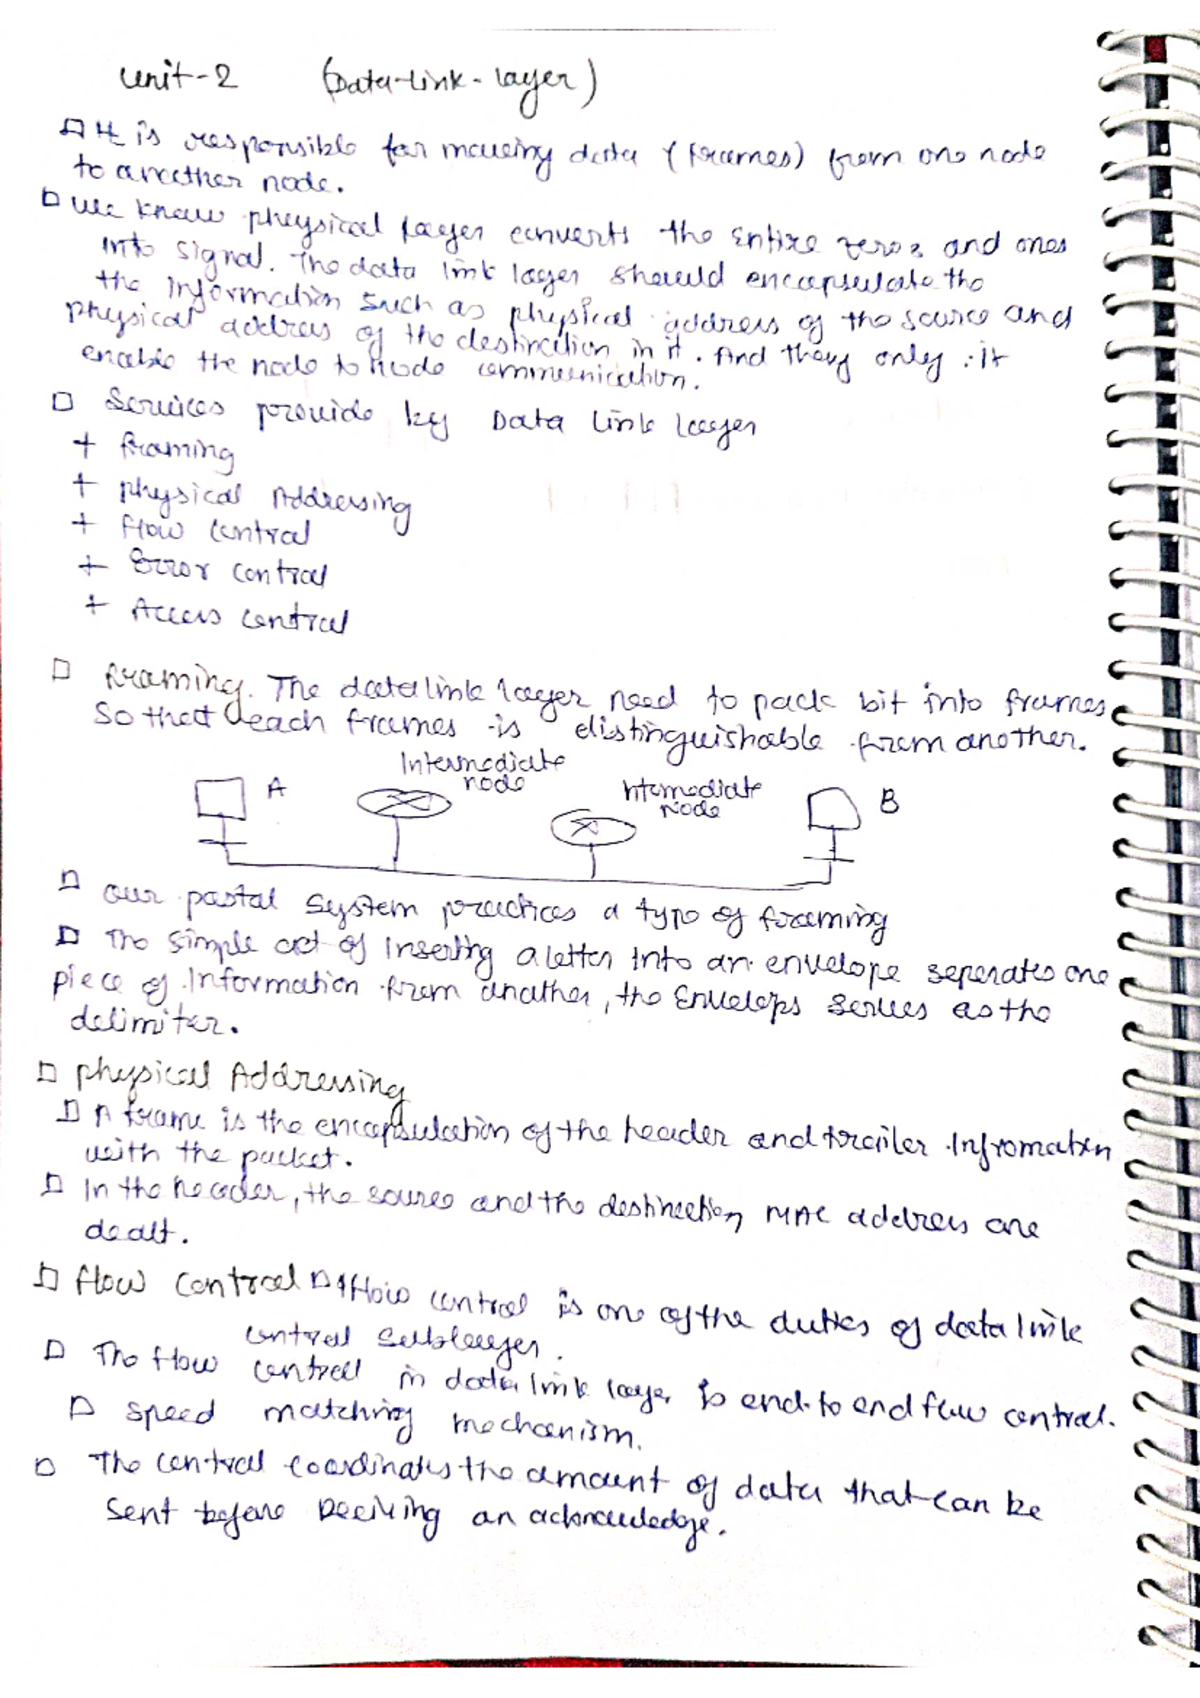 Unit-2 (Data-Link-Layer)
It is responsible for moving data (frames) from one node
to another node.
We know physical layer converts the entire zeros and ones
into signal. The data link layer should encapsulate the
the Information such as physical address of the source and
physical address of the destination in it. And they only it
enable the node to node communication.
Services provide by Data link layer
+ framing
+ physical Addressing
+ flow control
+ Error control
+ Access control
framing. The data link layer need to pack bit into frames
so that each frames is distinguishable from another.
Intermediate
node
A
Intermediate
Node
B
our postal system practices a type of framing
The simple act of Inserting a letter into an envelope seperates one
piece of Information from another, the Envelops serves as the
delimiter.
physical Addressing
A frame is the encapsulation of the header and trailer Infromation
with the packet.
In the header, the source and the destination MAC address are
dealt.
flow control flow control is one of the duties of data link
control sublayer.
The flow control in data link layer is end-to end flow control.
speed matching mechanism.
The control coordinates the amount of data that can be
sent before Reciving an acknowledge.